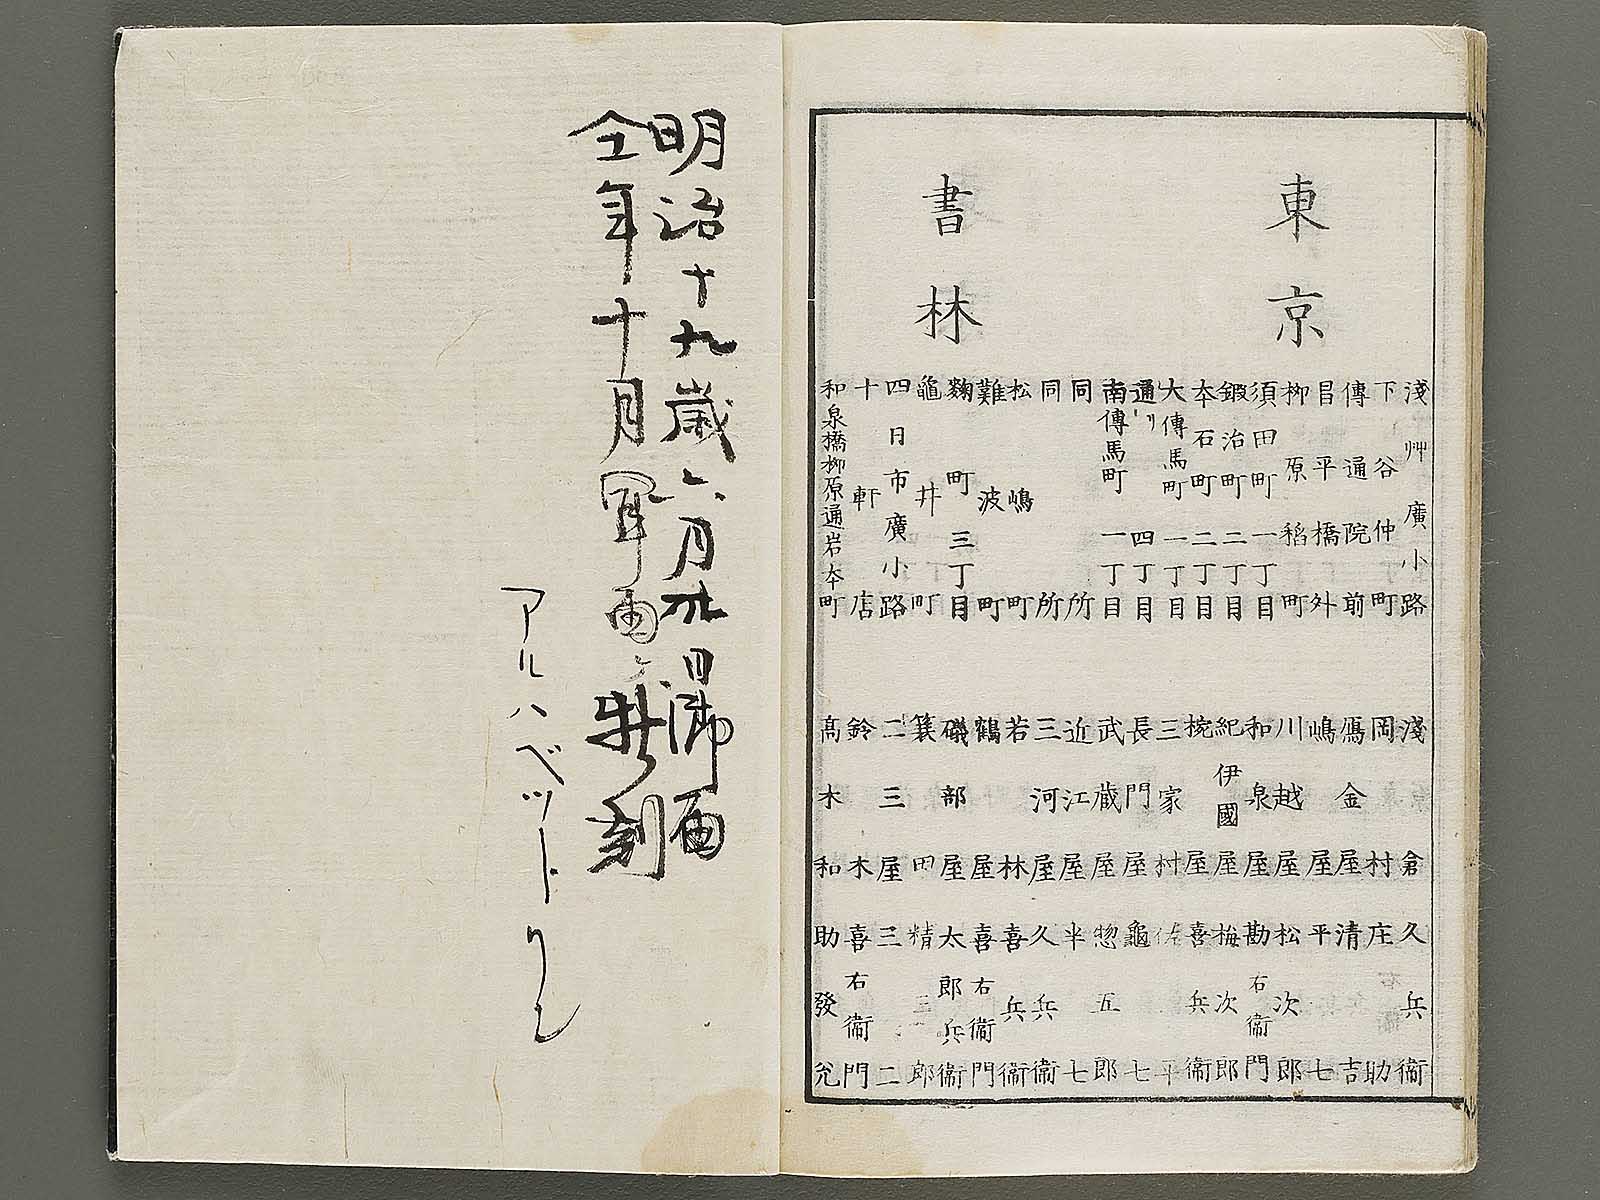 東京
書林
淺艸廣小路 淺倉久兵衞
下谷仲町 岡村庄助
傳通院前 鴈金屋清吉
昌平橋外 嶋屋平七
柳原稻町 川越屋松次郎
須田町一丁目 和泉屋勘右衞門
鍛治町二丁目 紀伊國屋梅次郎
夲石町二丁目 椀屋喜兵衞
大傳馬町一丁目 三家村佐平
通リ四丁目 長門屋龜七
南傳馬町一丁目 武蔵屋惣五郎
同所 近江屋半七
同所 三河屋久兵衞
松嶋町 若林喜兵衞
難波町 鶴屋喜右衞門
麴町三丁目 磯部屋太郎兵衞
龜井町 簑田精三郎
四日市廣小路 二三屋三二
十軒店 鈴木喜右衞門
和泉橋柳原通岩夲町 髙木和助發兌
明治十九歳六月廿日
仝年十月 刻
アルハベット